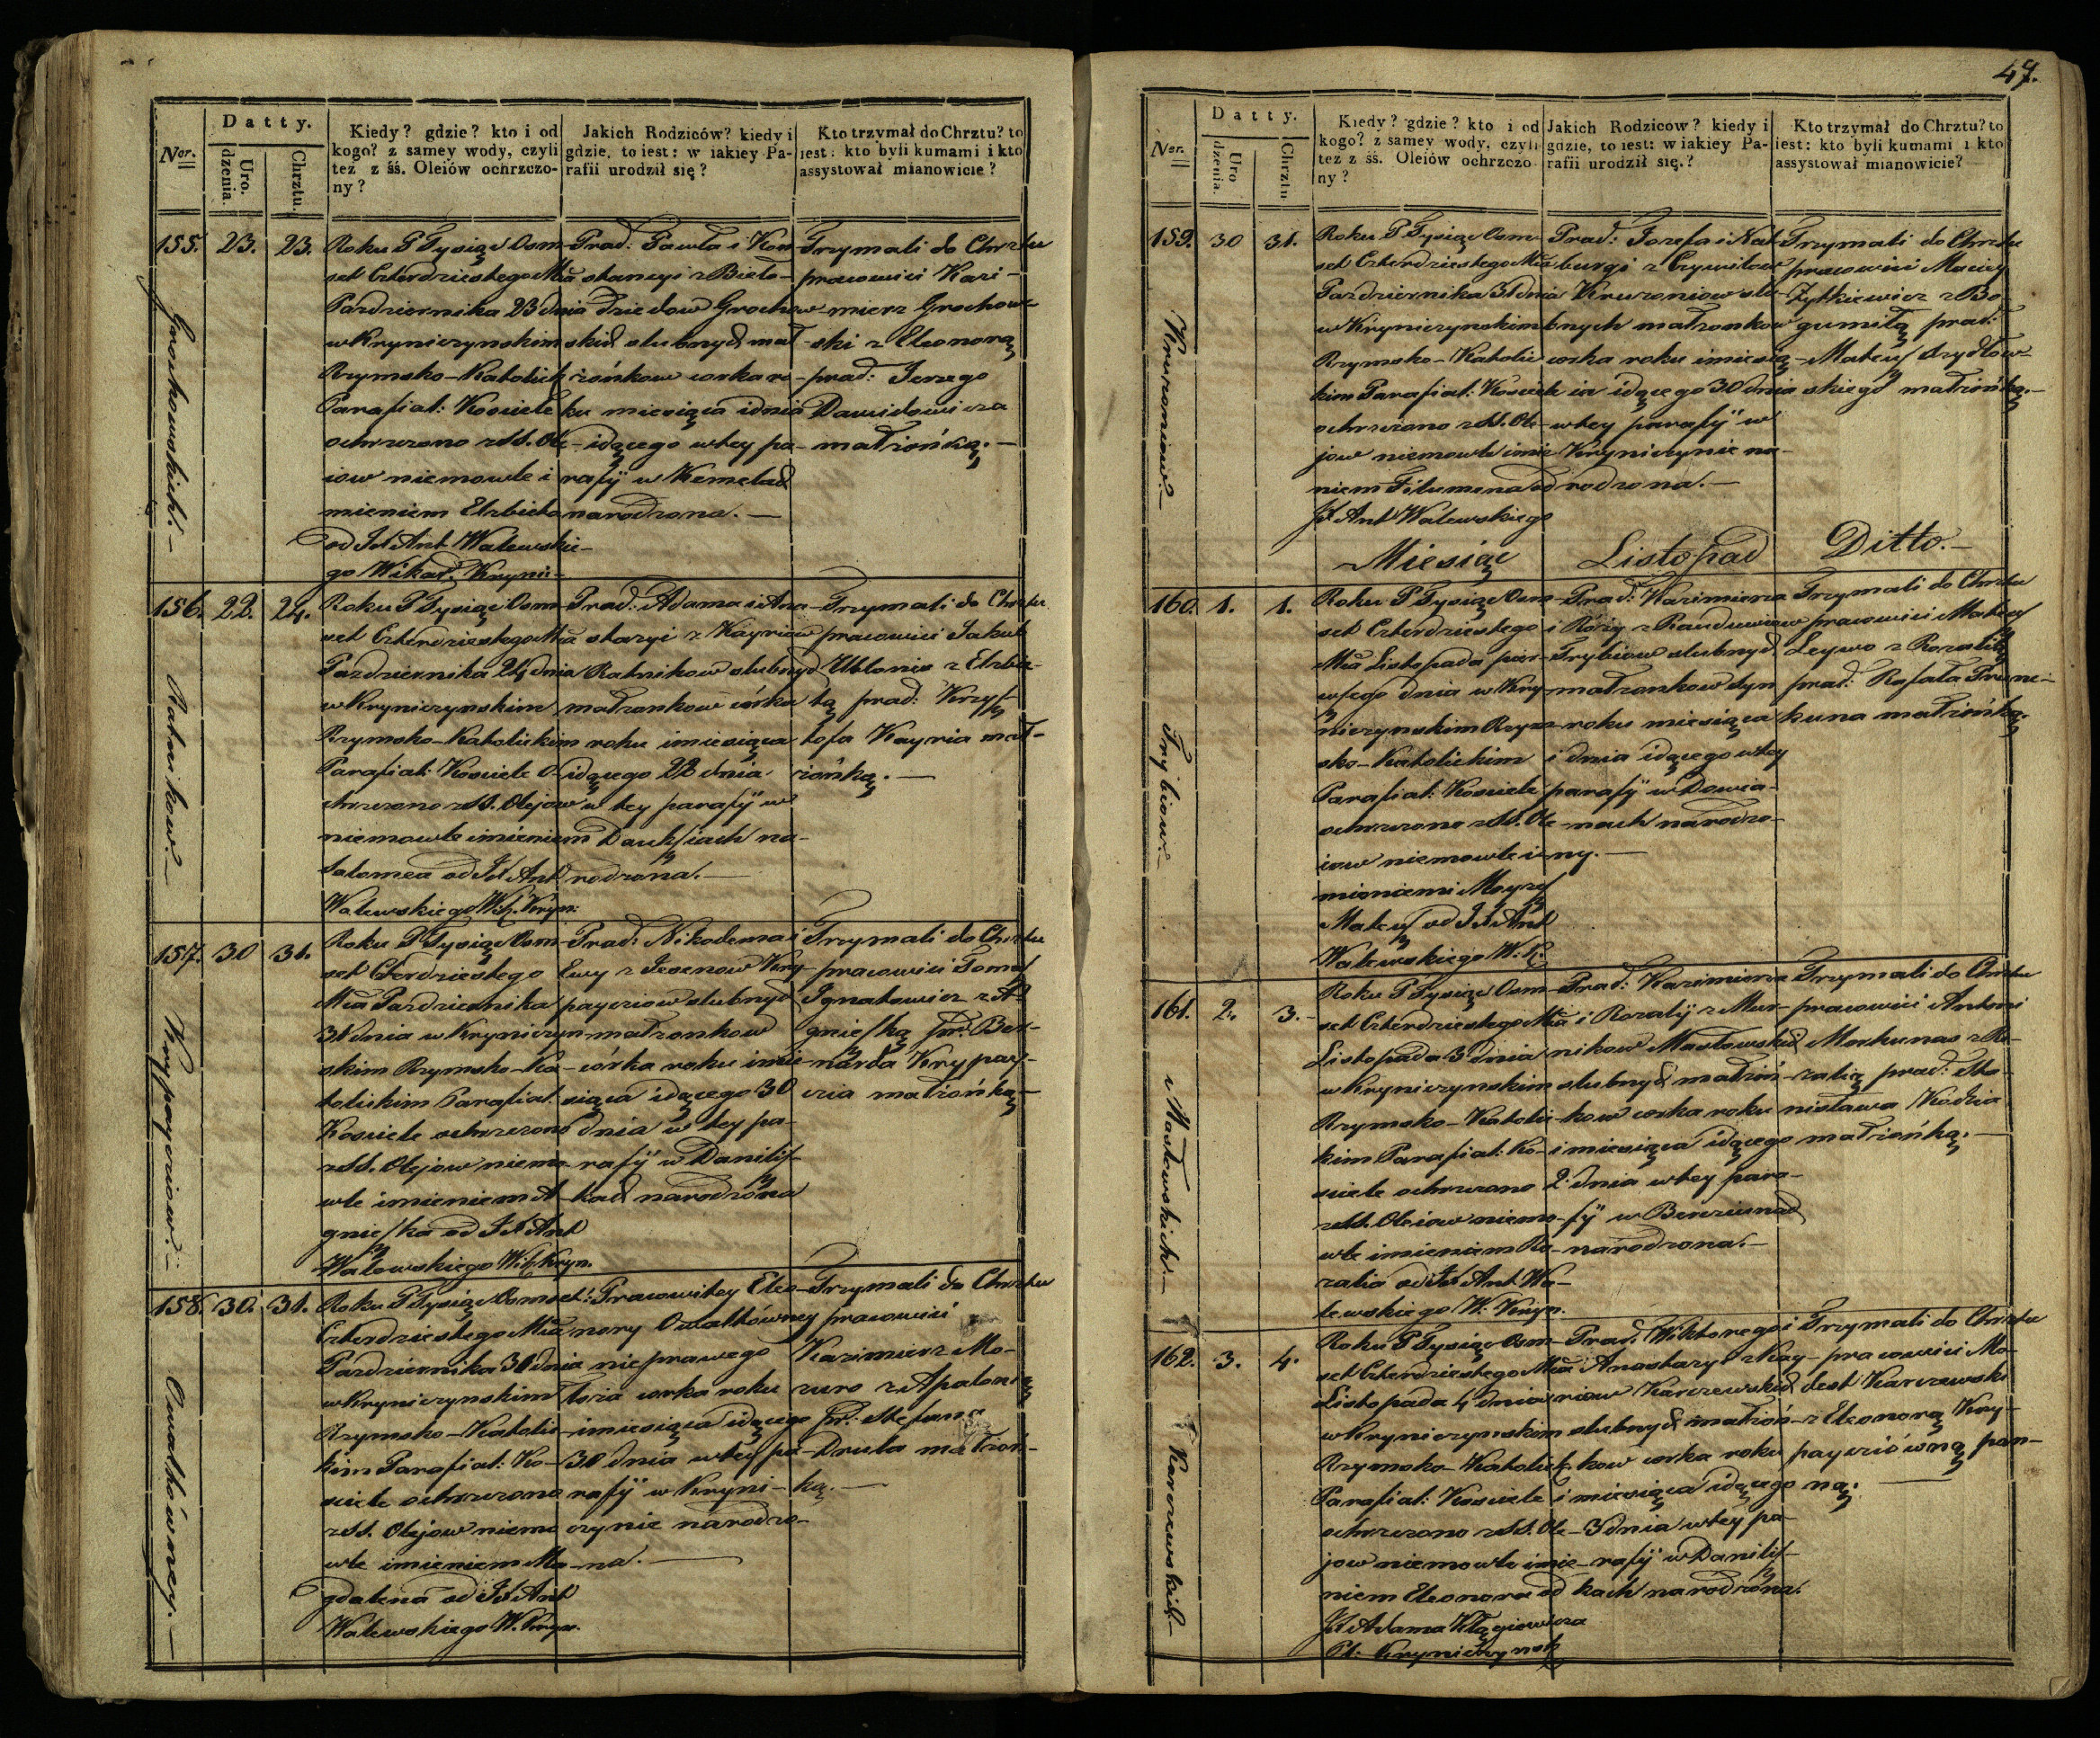 Datty.
Nor.
Uro.
dzenia.
Chrztu.
Kiedy? gdzie? kto i od
kogo? z samey wody, czyli
tez z śś. Oleiów ochrzczo-
ny?
Jakich Rodziców? kiedy i
gdzie, to iest: w iakiey Pa-
rafii urodził się?
Kto trzymał do Chrztu? to
iest: kto byli kumami i kto
assystował mianowicie?
155. 23. 23.
Grochowskich.
Roku P Tysiąc Osm-
set Czterdziestego Mca
Pazdziernika 23 dnia
w Kryniczynskim
Rzymsko-Katolick
Parafial: Kosciele
ochrzczono z SS. Ole-
iow niemowle i
mieniem Elzbieta
od Jd Ant Walewskie-
go Wikar. Kryni-
Prac: Pawła i Kon
stancyi z Bieto-
dziedow Grochow
skich slubnych mał
żónkow corka ro-
ku miesiąca i dnia
idącego w tey pa-
rafÿ w Kemelach
narodzona.
Trzymali do Chrztu
pracowici Kazi-
mierz Grochow-
ski z Eleonorą
prac: Jerzego
Dawidowicza
małżońką.
156. 22. 24.
Ratnikow.
Roku P Tysiąc Osm-
set Czterdziestego Mca
Pazdziernika 24 dnia
w Kryniczynskim
Rzymsko-Katolickim
Parafial: Kosciele o-
chrzczono z SS. Olejow
niemowle imieniem
Salomea od Jd Ant
Walewskiego Wik. Kryn:
Prac: Adama i Ana-
stazyi z Kayriow
Ratnikow slubnych
małzonkow córka
roku i miesiąca
idącego 22 dnia
w tey parafÿ w
Daukszach na-
rodzona.
Trzymali do Chrztu
pracowici Jakub
Ublanis z Elzbie-
tą prac: Krzysz
tofa Kayria mał-
żońką.
157. 30 31.
Krypayciow.
Roku P Tysiąc Osm-
set Czterdziestego
Mca Pazdziernika
31 dnia w Kryniczyn-
skim Rzymsko-Ka-
tolickim Parafial.
Kosciele ochrzczono
z SS. Olejow niemo-
wle imieniem A-
gnieszka od Jd Ant
Walewskiego Wik Kryn.
Prac: Nikodema i
Ewy z Jesenow Kry-
payciow slubnych
małzonkow
córka roku i mie-
siąca idącego 30
dnia w tey pa-
rafÿ w Danilisz-
kach narodzona
Trzymali do Chrztu
pracowici Tomasz
Ignatowicz z A-
gnieszką pr: Ber-
narda Krypay-
cia małżońką
158. 30. 31.
Owaltówney.
Roku P Tysiąc Osmset
Czterdziestego Mca
Pazdziernika 31 dnia
w Kryniczynskim
Rzymsko-Katolic-
kim Parafial: Ko-
sciele ochrzczono
z SS. Olejow niemo
wle imieniem Ma-
gdalena od Jd Ant
Walewskiego W. Kryn.
Pracowitey Eleo-
nory Owaltówney
nieprawego
łoża corka roku
i miesiąca idącego
30 dnia w tey pa-
rafÿ w Kryni-
czynie narodzo-
na.
Trzymali do Chrztu
pracowici
Kazimierz Mo-
zuro z Apolonią
pr: Stefana
Druła małżoń-
ką.
47.
Datty.
Nor.
Uro
dzenia.
Chrztu
Kiedy? gdzie? kto i od
kogo? z samey wody, czyli
tez z śś. Oleiów ochrzczo
ny?
Jakich Rodzicow? kiedy i
gdzie, to iest: w iakiey Pa-
rafii urodził się.?
Kto trzymał do Chrztu? to
iest: kto byli kumami i kto
assystował mianowicie?
159. 30 31.
Kruzoniow.
Roku P Tysiąc Osm-
set Czterdziestego Mca
Pazdziernika 31 dnia
w Kryniczynskim
Rzymsko-Katolic
kim Parafial: Kosciele
ochrzczono z SS. Ole-
jow niemowle imie
niem Filumena od
Jd Ant Walewskiego
Prac: Jozefa i Wal-
burgi z Czywilow
Kruzoniow slu-
bnych małzonkow
corka roku i miesią-
ca idącego 30 dnia
w tey parafÿ w
Kryniczynie na-
rodzona.
Trzymali do Chrztu
pracowici Maciey
Żytkiewicz z Bo-
gumiłą prac:
Mateusz Szydłow-
skiego małżońką.
Miesiąc Listopad Ditto.
160. 1. 1.
Trybiow.
Roku P Tysiąc Osm-
set Czterdziestego
Mca Listopada pier-
wszego dnia w Kry-
niczynskim Rzym-
sko-Katolickim
Parafial: Kosciele
ochrzczono z SS. Ole-
iow niemowle i-
mieniem Moyzesz
Mateusz od Jd Ant
Walewskiego W. K.
Prac: Kazimierza
i Róży z Randuwiow
Trybiow slubnych
małzonkow syn
roku miesiąca
i dnia idącego w tey
parafÿ w Dowia-
nach narodzo-
ny.
Trzymali do Chrztu
pracowici Mateusz
Leywo z Rozalią
prac: Rafała Trune-
kuna małżońką.
161. 2. 3.
Masłowskich.
Roku P Tysiąc Osm-
set Czterdziestego Mca
Listopada 3 dnia
w Kryniczynskim
Rzymsko-Katolic-
kim Parafial: Ko-
sciele ochrzczono
z SS. Oleiow niemo-
wle imieniem Ro-
zalia od Jd Ant Wa-
lewskiego W: Kryn.
Prac: Kazimierza
i Rozalÿ z Mur-
nikow Masłowskich
slubnych małżoń-
kow corka roku
i miesiąca idącego
2 dnia w tey para-
fÿ w Berziunach
narodzona.
Trzymali do Chrztu
pracowici Antoni
Morkunas z Ro-
zalią prac: Sta-
nisława Kodzia
małżońką.
162. 3. 4.
Karczewskich.
Roku P Tysiąc Osm-
set Czterdziestego Mca
Listopada 4 dnia
w Kryniczynskim
Rzymsko-Katolick
Parafial: Kosciele
ochrzczono z SS. Ole-
jow niemowle imie-
niem Eleonora od
Jd Adama Klągiewicza
Pl: Kryniczynsk
Prac: Wiktorego i
Anastazyi z Kay-
riow Karczewskich
slubnych małżoń-
kow corka roku
i miesiąca idącego
3 dnia w tey pa-
rafÿ w Danilisz-
kach narodzona.
Trzymali do Chrztu
pracowici Mo-
dest Karczewski
z Eleonorą Kry-
payciówną pan-
ną.